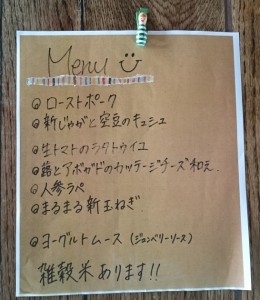 Menu
◎ローストポーク
◎新じゃがと空豆のキッシュ
◎生トマトのラタトゥイユ
◎蕗とアボガドのカッテージチーズ和え
◎人参ラペ
◎まるまる新玉ねぎ
◎ヨーグルトムース (ジョンベリーソース)
雑穀米あります!!